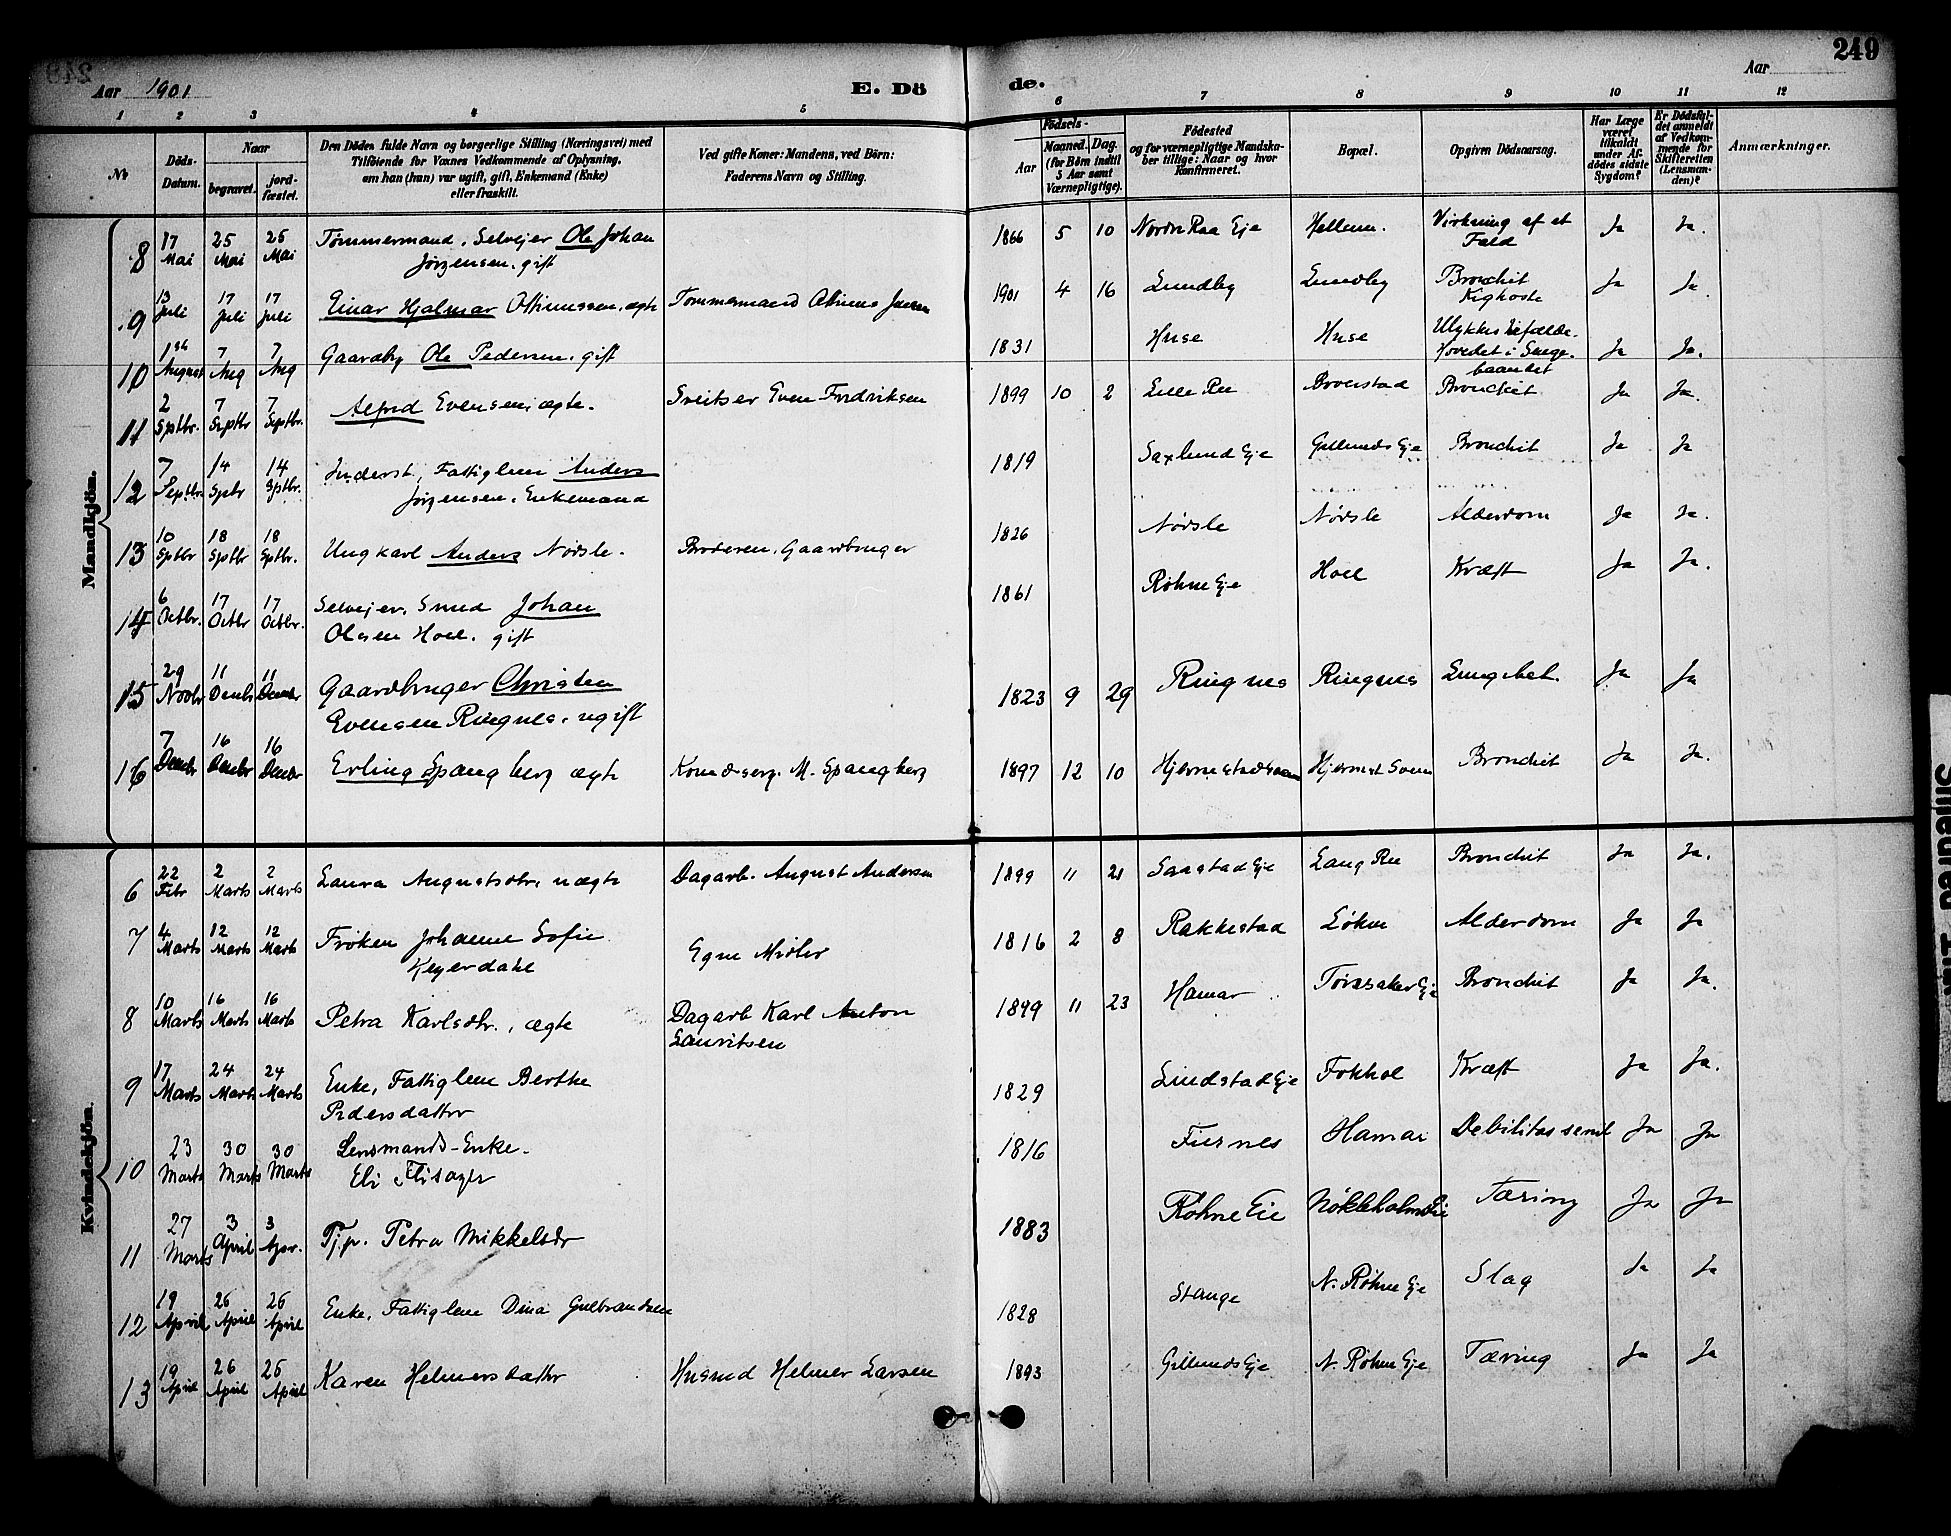 249
Aar 1901
E. Döde.
Aar
1 2 3 4 5 6 7 8 9 10 11 12
No
Döds-Datum.
Naar
begravet.
jordfæstet.
Den Dödes fulde Navn og borgerlige Stilling (Næringsvei) med
Tilföiende for Voxnes Vedkommende af Oplysning,
om han (hun) var ugift, gift, Enkemand (Enke)
eller fraskilt.
Ved gifte Koner: Mandens, ved Börn:
Faderens Navn og Stilling.
Födsels-
Aar
Maaned. Dag.
(for Börn indtil
5 Aar samt
Værnepligtige).
Födested
og for værnepligtige Mandska-
ber tillige: Naar og hvor
konfirmeret.
Bopæl.
Opgiven Dödsaarsag.
Har Læge
været
tilkaldt
under Af-
dödes sidste
Sygdom?
Er Dödsfal-
det anmeldt
af Vedkom-
mende for
Skifteretten
(Lensman-
den)?
Anmærkninger.
Mandkjön.
8 17 Mai 25 Mai 25 Mai Tømmermand, Selvejer Ole Johan Jørgensen, gift 1866 5 10 Nordre Raa Eje Hellum. Virkning af et Fald Ja Ja.
9 13 Juli 17 Juli 17 Juli Einar Hjalmar Othinussen, ægte Tømmermand 1901 4 16 Lundby Lundby Bronchit Kighoste Ja Ja.
10 1ste August 7 Aug 7 Aug Gaardbr Ole Pedersen, gift 1831 Huse Huse Ulykkestilfælde Hovedet i Ja Ja.
11 2 Septbr. 7 Septbr 7 Septbr. Alfred Evensen, ægte. Sveitser Even Fredriksen 1899 10 2 Lille Re Bronchit Ja Ja.
12 7 Septbr. 14 Spbr 14 Sptbr. Inderst, Fattiglem Anders Jørgensen, Enkemand 1819 Saxlund Eje Gillunds Eje Bronchit Ja Ja
13 10 Sptbr 18 Sptbr 18 Sptbr. Ungkarl Anders Nødsle. Broderen, Gaardbruger 1826 Nødsle Nødsle Alderdom Ja Ja.
14 6 Octbr. 17 Octbr 17 Octbr. Selvejer, Smed Johan Olesen Hoel, gift 1861 Røhne Eje Hoel Kræft Ja Ja.
15 29 Novbr 11 Decmbr 11 Decmbr Gaardbruger Christen Evensen Ringnes, ugift 1823 9 29 Ringnes Ringnes Lungebet. Ja Ja
16 7 Decmbr 16 Decmbr 16 Decmbr Erling Spangberg ægte M. Spangberg 1897 12 10 Hjernestadsveen Hjernest Sveen Bronchit Ja Ja.
Kvindekjön.
6 22 Febr 2 Marts 2 Marts Laura Augustsdtr, uægte Dagarb. August Andersen 1899 11 21 Saastad Eje Lang Re Bronchit Ja Ja.
7 4 Marts 12 Marts 12 Marts Frøken Johanne Sofie Keyerdahl Egne Midler 1816 2 8 Rakkestad Løkne Alderdom Ja Ja
8 10 Marts 16 Marts 16 Marts Petra Karlsdtr., ægte Dagarb Karl Anton Lauritsen 1899 11 23 Hamar Torsaker Eje Bronchit Ja Ja.
9 17 Marts 24 Marts 24 Marts Enke, Fattiglem Berthe Pedersdatter 1829 Lindstad Eje Fokhol Kræft Ja Ja.
10 23 Marts 30 Marts 30 Marts Lensmands-Enke. Eli Flisager 1816 Furnes Hamar Debilitas senil Ja Ja
11 27 Marts 3 April 3 Apr. Tj.p. Petra Mikkelsdr 1883 Røhne Eie Nøkleholm Eie Tæring Ja Ja
12 19 April 26 April 26 April Enke, Fattiglem Dina Gulbrandsen 1828 Stange N. Røhne Eje Slag Ja Ja
13 19 April 26 April 26 April Karen Helmersdatter Husmd Helmer Larsen 1893 Gillunds Eje N. Røhne Eje Tæring Ja Ja